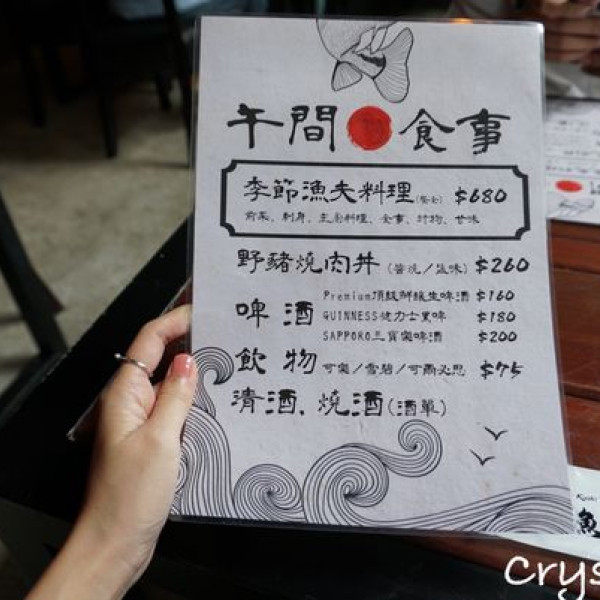 午間 食事
季節漁夫料理(餐套) $680
前菜、刺身、主廚料理、食事、汁物、甘味
野豬燒肉丼(醬燒/鹽味) $260
啤酒
Premium頂級鮮釀生啤酒 $160
GUINNESS健力士黑啤 $180
SAPPORO三寶樂啤酒 $200
飲物 可樂/雪碧/可爾必思 $75
清酒、燒酒(酒單)
魚
Crys